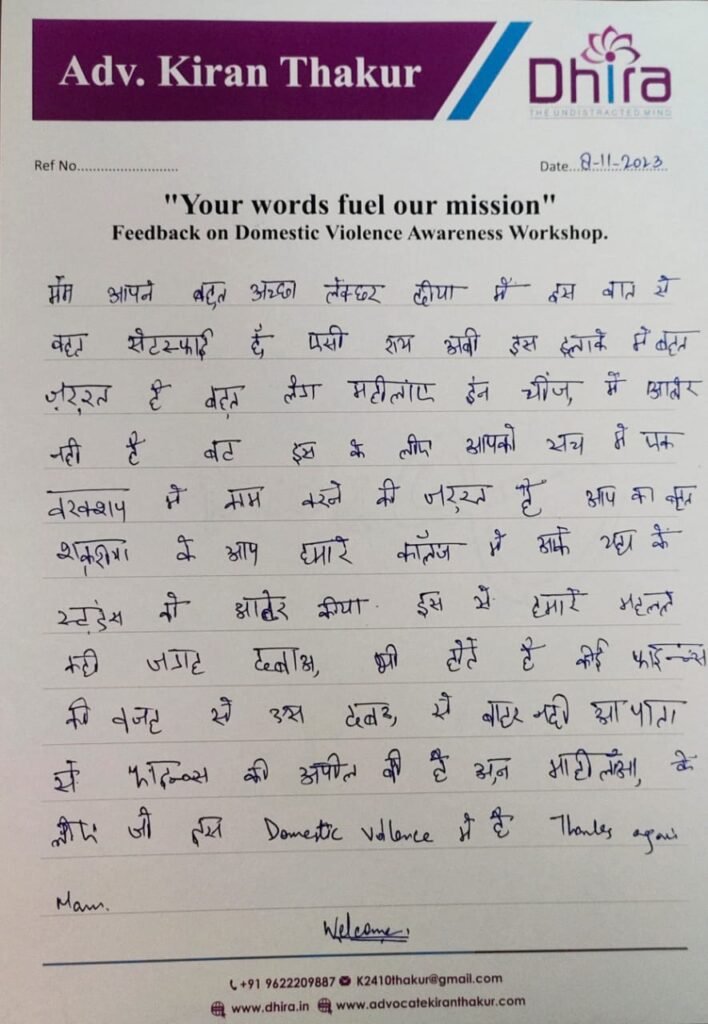 Adv. Kiran Thakur
Dhira
THE UNDISTRACTED MIND
Ref No..........................
Date... 8-11-2023
"Your words fuel our mission"
Feedback on Domestic Violence Awareness Workshop.
मैम आपने बहुत अच्छा लेक्छर दीया में इस बात से
बहुत सेटस्फाई हूँ, एसी राय अबी इस इलाके मे बहुत
ज़रूरत है बहुत लोग महीलाए इन चींज, में आवेर
नही है बट इस के लीए आपको सच मे एक
वरक्शाप मे काम करने की जरूरत है आप का बहुत
शक्रीया के आप हमारे कॉलज मे आके यहा के
स्टूडेंस को आवेर कीया. इस से हमारे महलले
कही जगाह दबाअ, भी होते है कोई फाईनेन्स
की वजह से उस दबाउ, से बाहर नही आ पाता
से फाइनेन्स की अपील की है उन माहीलाओ, के
लीए जो इस Domestic vollence मे है Thanks again
Mam.
Welcome.
+91 9622209887 K2410thakur@gmail.com
www.dhira.in www.advocatekiranthakur.com